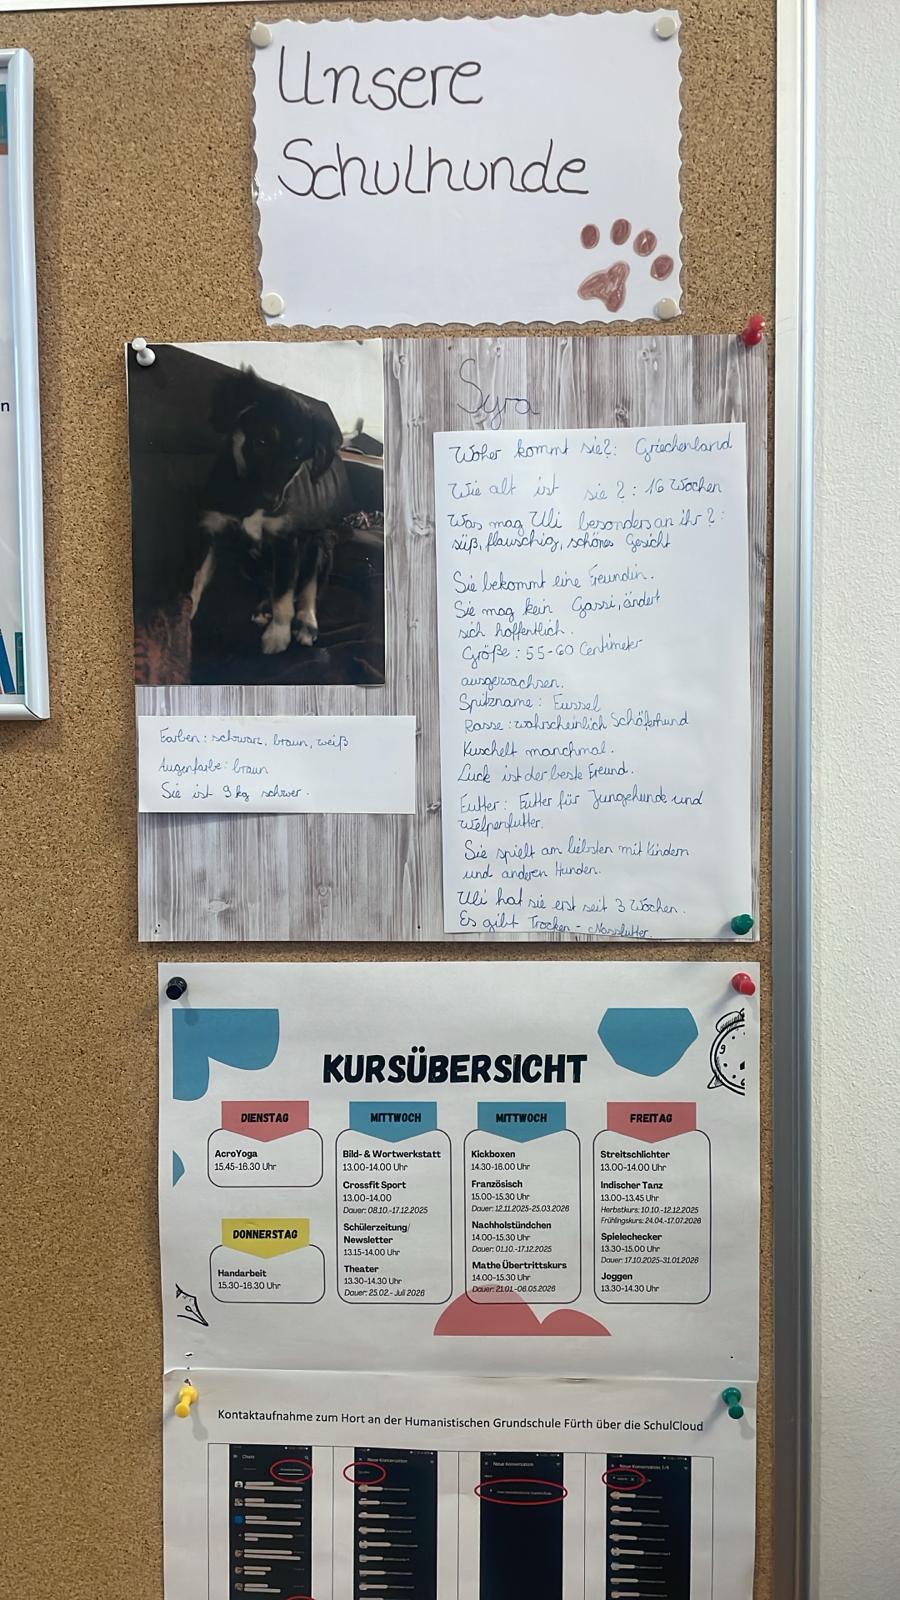 n
Unsere
Schulhunde
Syra
Woher kommt sie?: Griechenland
Wie alt ist sie?: 16 Wochen
Was mag Uli besonders an ihr?:
süß, flauschig, schönes Gesicht
Sie bekommt eine Freundin.
Sie mag kein Gassi, ändert
sich hoffentlich.
Größe: 55-60 Centimeter
ausgewachsen.
Spitzname: Fussel
Rasse: wahrscheinlich Schäferhund
Kuschelt manchmal.
Luck ist der beste Freund.
Futter: Futter für Junghunde und
Welpenfutter.
Sie spielt am liebsten mit Kindern
und anderen Hunden.
Uli hat sie erst seit 3 Wochen.
Es gibt Trocken- Nassfutter.
Farben: schwarz, braun, weiß
Augenfarbe: braun
Sie ist 9 kg schwer.
KURSÜBERSICHT
DIENSTAG
AcroYoga
15.45-16.30 Uhr
DONNERSTAG
Handarbeit
15.30-16.30 Uhr
MITTWOCH
Bild- & Wortwerkstatt
13.00-14.00 Uhr
Crossfit Sport
13.00-14.00
Dauer: 08.10.-17.12.2025
Schülerzeitung/
Newsletter
13.15-14.00 Uhr
Theater
13.30-14.30 Uhr
Dauer: 25.02.- Juli 2026
MITTWOCH
Kickboxen
14.30-16.00 Uhr
Französisch
15.00-15.30 Uhr
Dauer: 12.11.2025-25.03.2026
Nachholstündchen
14.00-15.30 Uhr
Dauer: 01.10.-17.12.2025
Mathe Übertrittskurs
14.00-15.30 Uhr
Dauer: 21.01.-06.05.2026
FREITAG
Streitschlichter
13.00-14.00 Uhr
Indischer Tanz
13.00-13.45 Uhr
Herbstkurs: 10.10.-12.12.2025
Frühlingskurs: 24.04.-17.07.2026
Spielechecker
13.30-15.00 Uhr
Dauer: 17.10.2025-31.01.2026
Joggen
13.30-14.30 Uhr
Kontaktaufnahme zum Hort an der Humanistischen Grundschule Fürth über die SchulCloud
Chats
Neue Konversation
Neue Konversation
Neue Konversation 1/1